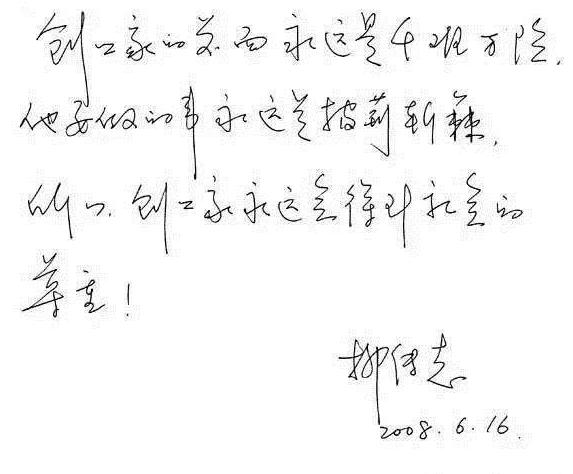 创业家的前面永远是千难万险,
他要做的事永远是披荆斩棘,
所以,创业家永远会得到社会的
尊重!
柳传志
2008.6.16.